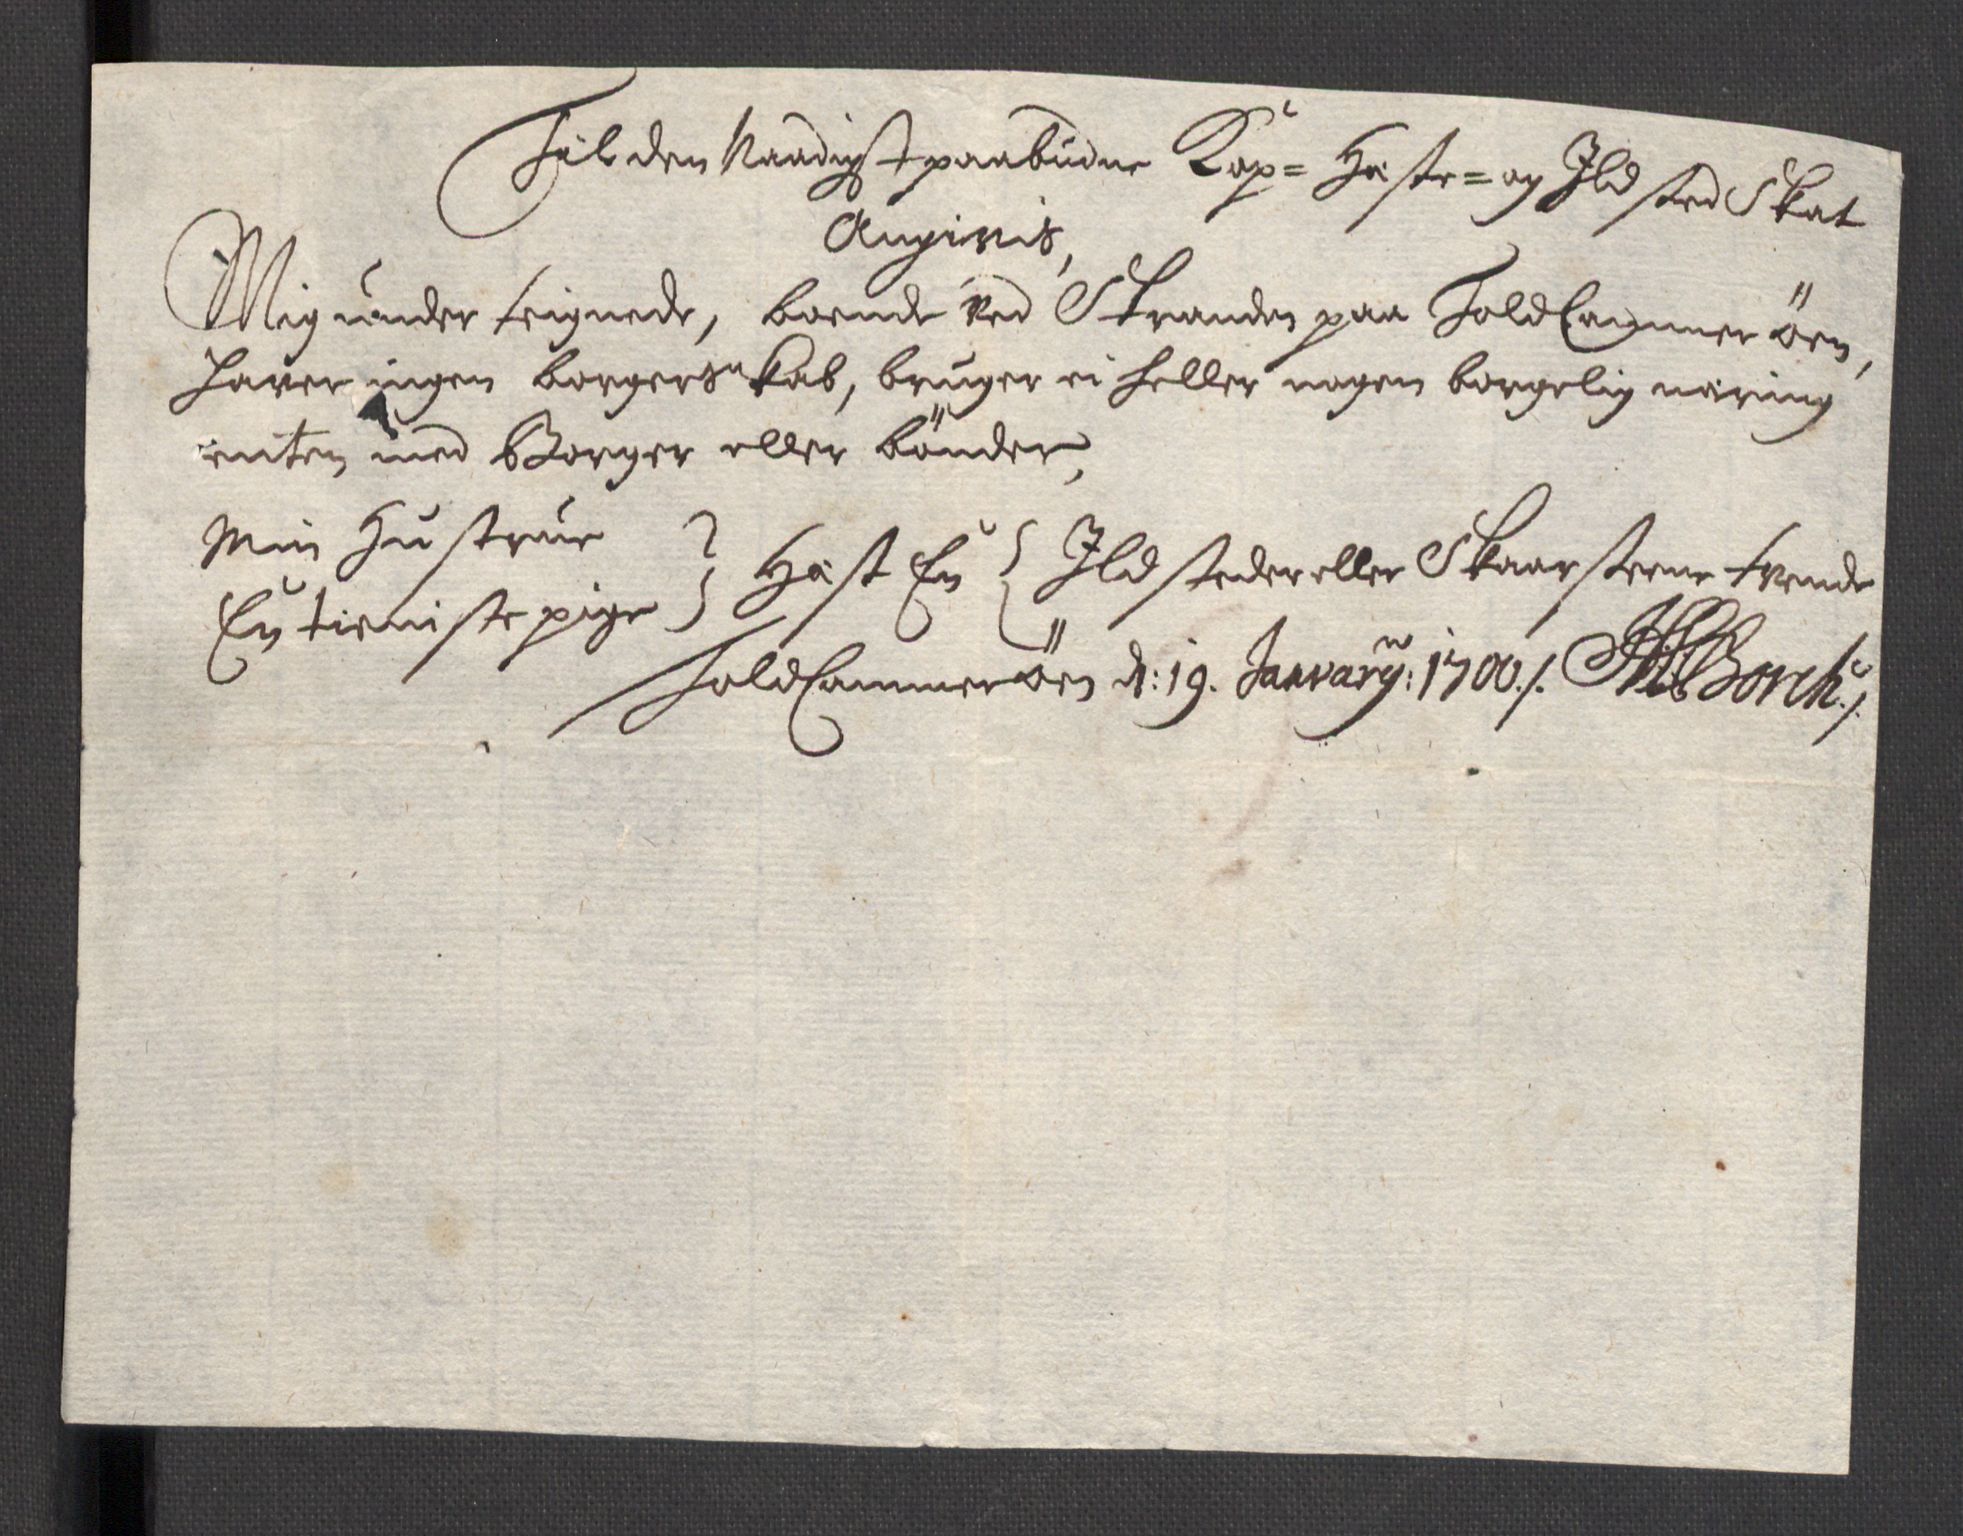 Til den Naadigst paabudne Kop= Heste= og Ild sted Skat
Angivis,
Mig under teignede, boende ved Stranden paa Told Cammer öen,
haver ingen borgerskab, bruger ei heller nogen borgelig næring
enten med Borger eller bönder,
Min Hustrue } Hæst En { Ild steder eller Skaarsteene tvende
En tieniste pige
Told Cammer öen d: 19. January: 1700 ./. Borch ./.